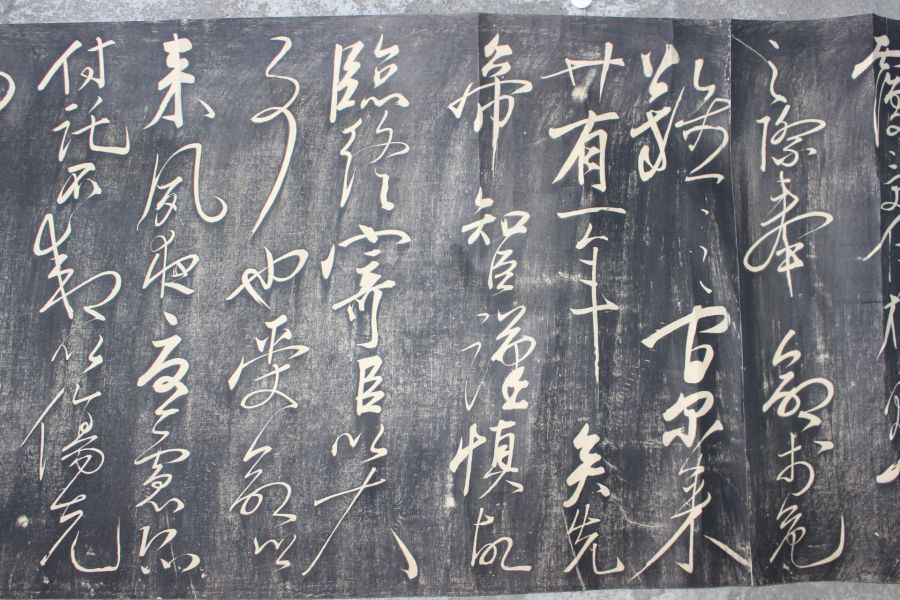 覆受任於敗
之際奉命於危
難之間爾來
廿有一年矣先
帝知臣謹慎故
臨終寄臣以大
事也受命以
來夙夜憂慮恐
付託不效以傷先